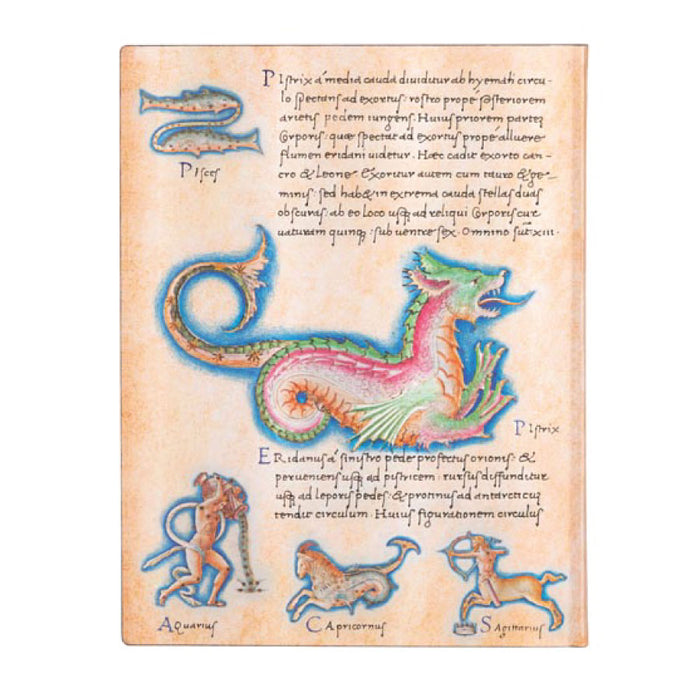 PIstrix á media cauda diuiditur ab hyemali circu-
lo spectans ad exortus: rostro propé posteriorem
arietis pedem iungens. Huius priorem partem
Corporis: quae spectat ad exortus propé alluere
flumen eridani uidetur. Haec cadit exorto can-
cro & Leone. Exoritur autem cum tauro & ge-
minis: sed hab& in extrema cauda stellas duas
obscuras: ab eo Loco usq; ad reliqui Corporis cur
uaturam quinq; : sub uentre sex. Omnino sūt: xiii.
PIsces
PIstrix
ERidanus á sinistro pede profectus orionis: &
perueniens usq; ad pistricem: rursus diffunditur
usq; ad leporis pedes: & protinus ad antarcticū
tendit circulum. Huius figurationem circulus
AQuarius
CApricornus
SAgittarius